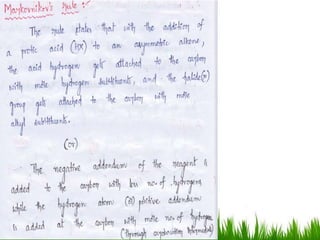 Markovnikov's rule :-
The rule states that with the addition of
a protic acid (HX) to an asymmetric alkene,
the acid hydrogen gets attached to the carbon
with more hydrogen substituents, and the halide(X)
group gets attached to the carbon with more
alkyl substituents.
(or)
The negative addendum of the reagent is
added to the carbon with less no. of hydrogens
while the hydrogen atom (or) positive addendum
is added at the carbon with more no. of hydrogens
(Through carbocation intermediate)